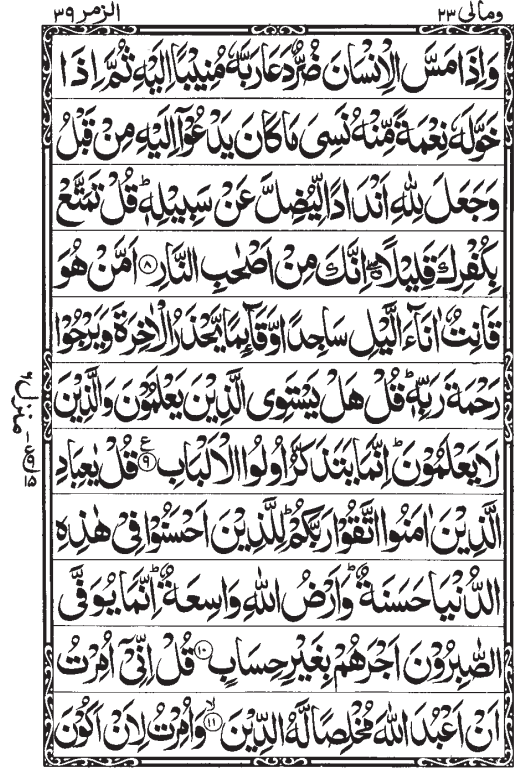 ومالى ٢٣
الزمر ٣٩
وَاِذَا مَسَّ الْاِنْسَانَ ضُرٌّ دَعَا رَبَّهٗ مُنِيْبًا اِلَيْهِ ثُمَّ اِذَا
خَوَّلَهٗ نِعْمَةً مِّنْهُ نَسِىَ مَا كَانَ يَدْعُوْۤا اِلَيْهِ مِنْ قَبْلُ
وَجَعَلَ لِلّٰهِ اَنْدَادًا لِّيُضِلَّ عَنْ سَبِيْلِهٖ ؕ قُلْ تَمَتَّعْ
بِكُفْرِكَ قَلِيْلًا ۖ اِنَّكَ مِنْ اَصْحٰبِ النَّارِ ﴿۸﴾ اَمَّنْ هُوَ
قَانِتٌ اٰنَآءَ الَّيْلِ سَاجِدًا وَّقَآئِمًا يَّحْذَرُ الْاٰخِرَةَ وَيَرْجُوْا
رَحْمَةَ رَبِّهٖ ؕ قُلْ هَلْ يَسْتَوِى الَّذِيْنَ يَعْلَمُوْنَ وَالَّذِيْنَ
لَا يَعْلَمُوْنَ ؕ اِنَّمَا يَتَذَكَّرُ اُولُوا الْاَلْبَابِ ﴿۹﴾ ع قُلْ يٰعِبَادِ
الَّذِيْنَ اٰمَنُوا اتَّقُوْا رَبَّكُمْ ؕ لِلَّذِيْنَ اَحْسَنُوْا فِىْ هٰذِهِ
الدُّنْيَا حَسَنَةٌ ؕ وَاَرْضُ اللّٰهِ وَاسِعَةٌ ؕ اِنَّمَا يُوَفَّى
الصّٰبِرُوْنَ اَجْرَهُمْ بِغَيْرِ حِسَابٍ ﴿۱۰﴾ قُلْ اِنِّىْۤ اُمِرْتُ
اَنْ اَعْبُدَ اللّٰهَ مُخْلِصًا لَّهُ الدِّيْنَ ﴿۱۱﴾ۙ وَاُمِرْتُ لِاَنْ اَكُوْنَ
منزل ٦